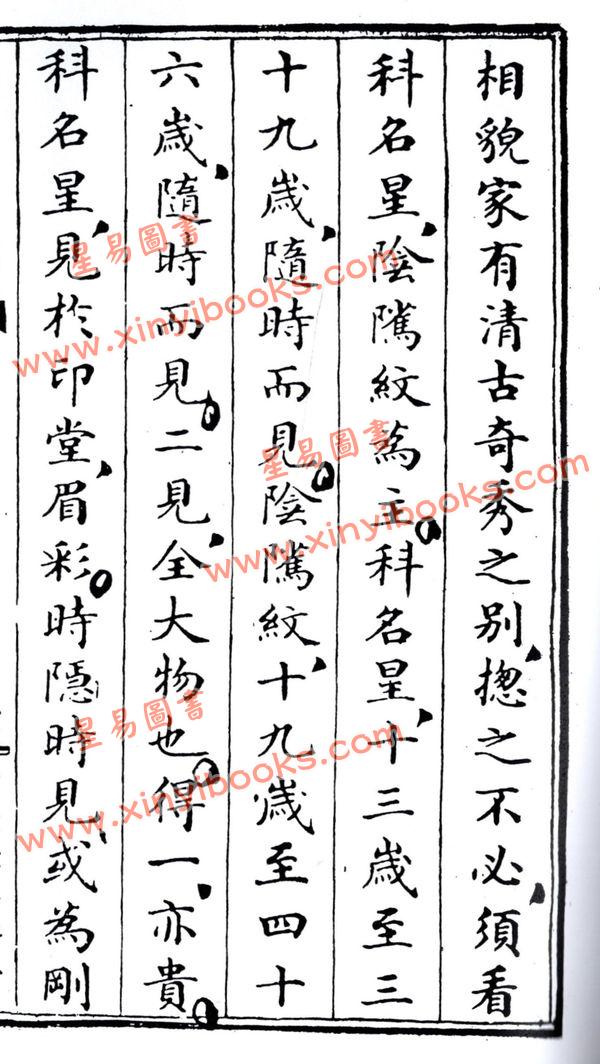 相貌家有清古奇秀之別、揔之不必、須看
科名星、陰隲紋為主。科名星、十三歲至三
十九歲、隨時而見。陰隲紋、十九歲至四十
六歲、隨時而見。二見、全大物也。得一、亦貴。
科名星、見於印堂、眉彩。時隱時見、或為剛
星易圖書
www.xinyibooks.com
星易圖書
www.xinyibooks.com
星易圖書
www.xinyibooks.com